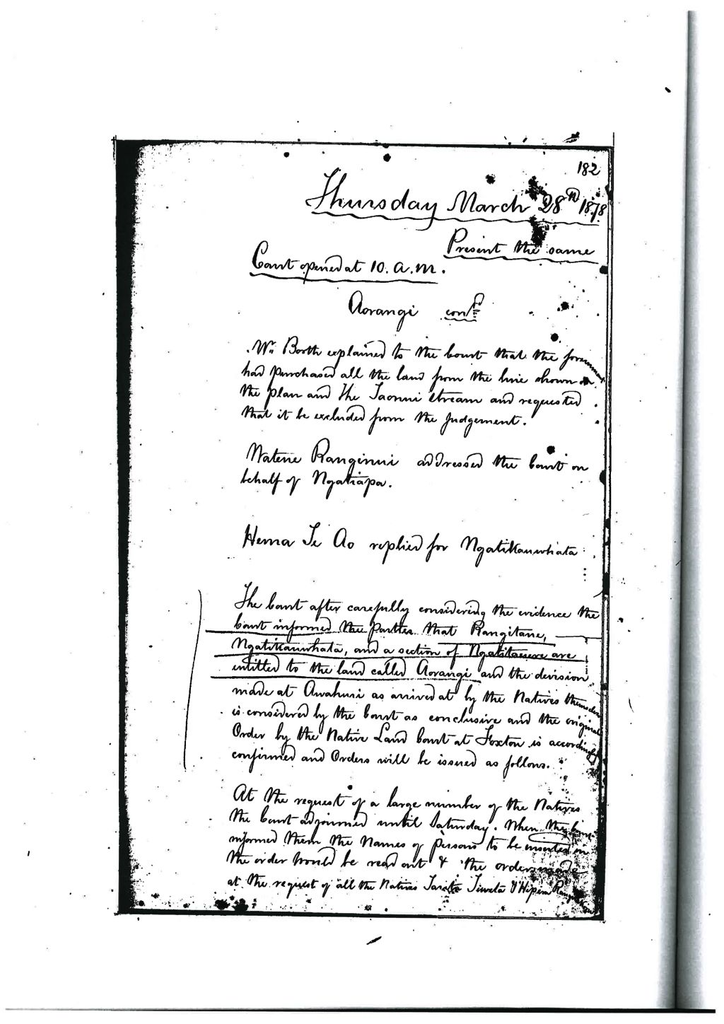 182
Thursday March 28th 1878
Present the same
Court opened at 10. a.m.
Aorangi cont.
Mr Booth explained to the Court that the
had purchased all the land from the line shown on
the plan and the Taonui stream and requested
that it be excluded from the Judgement.
Watene Ranginui addressed the Court on
behalf of Ngatiapa.
Hema Te Ao replied for Ngatikauwhata
The Court after carefully considering the evidence the
Court informed the Parties that Rangitane,
Ngatikauwhata, and a section of are
entitled to the land called Aorangi and the division
made at Awahuri as arrived at by the Natives
is considered by the Court as conclusive and the original
Order by the Native Land Court at Foxton is
confirmed and Orders will be issued as follows.
At the request of a large number of the Natives
the Court adjourned until Saturday. When the
informed them the Names of persons to be inserted on
the order would be read out & the order made
at the request of all the Natives